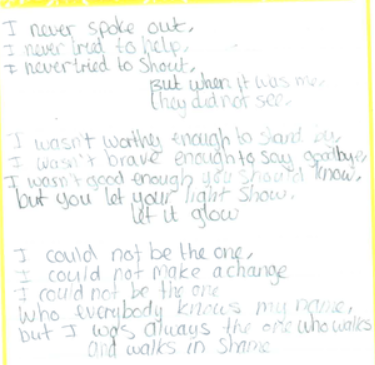 I never spoke out,
I never tried to help,
I never tried to shout,
But when it was me,
they did not see.
I wasn't worthey enough to stand by,
I wasn't brave enough to say goodbye,
I wasn't good enough you should know,
but you let your light show,
let it glow
I could not be the one,
I could not make a change
I could not be the one
Who everybody knows my name,
but I was always the one who walks
and walks in shame